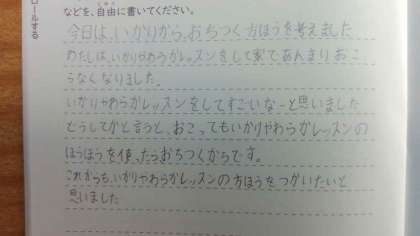 ロールする
などを、自由に書いてください。
今日は、いかりから、おちつく方ほうを考えました
わたしは、いかりやわらかレッスンをして家であんまりおこ
らなくなりました。
いかりやわらかレッスンをしてすごいなーと思いました
どうしてかと言うと、おこってもいかりやわらかレッスンの
ほうほうを使ったらおちつくからです。
これからも、いかりやわらかレッスンの方ほうをつかいたいと
思いました